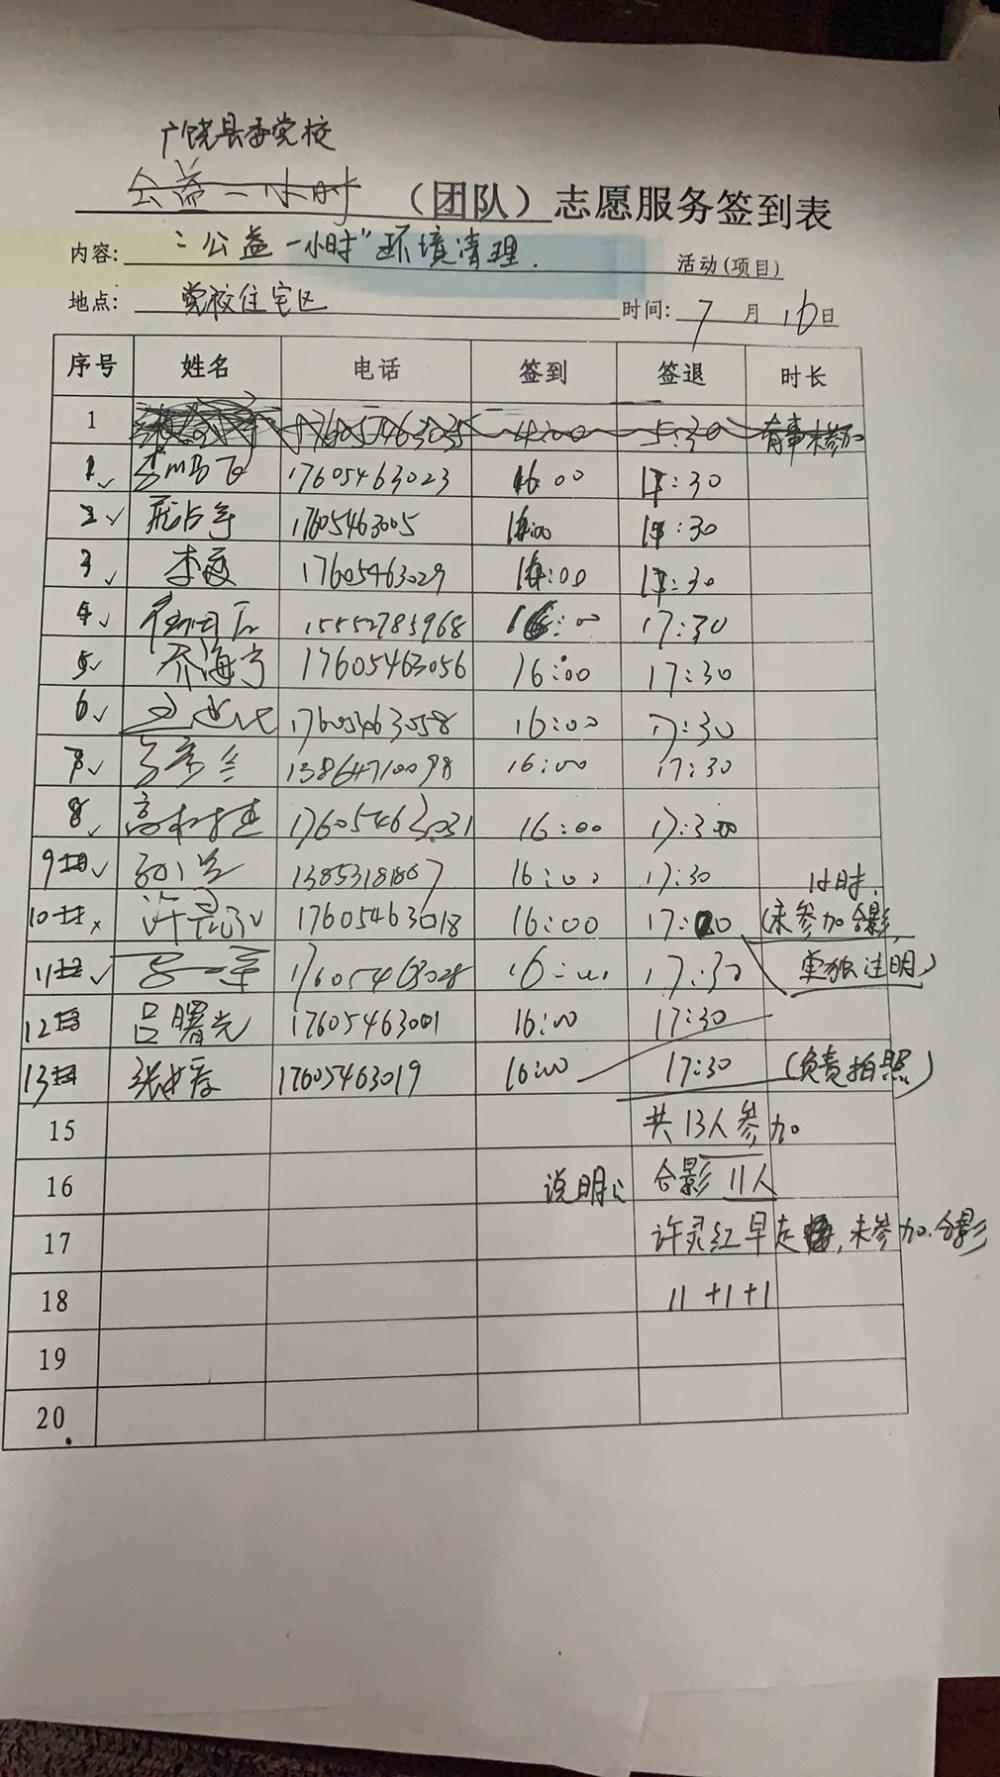 广饶县委党校
公益一小时 （团队）志愿服务签到表
内容: “公益一小时”环境清理. 活动(项目)
地点: 党校住宅区 时间: 7 月 16 日
序号 姓名 电话 签到 签退 时长
1 17605463035 4:00 5:30 有事未参加
1 17605463023 16:00 17:30
2 17605463005 16:00 17:30
3 17605463029 16:00 17:30
4 15552785968 16:00 17:30
5 齐海宁 17605463056 16:00 17:30
6 17605463058 16:00 17:30
7 13864710098 16:00 17:30
8 17605463031 16:00 17:30
9 16:00 17:30 1小时
10 许灵红 17605463018 16:00 17:00 (未参加合影,
单独注明)
11 17605463028 16:00 17:30
12 吕曙光 17605463001 16:00 17:30
13 17605463019 16:00 17:30 (负责拍照)
15 共13人参加
16 说明: 合影 11人
17 许灵红早走, 未参加合影
18 11+1+1
19
20